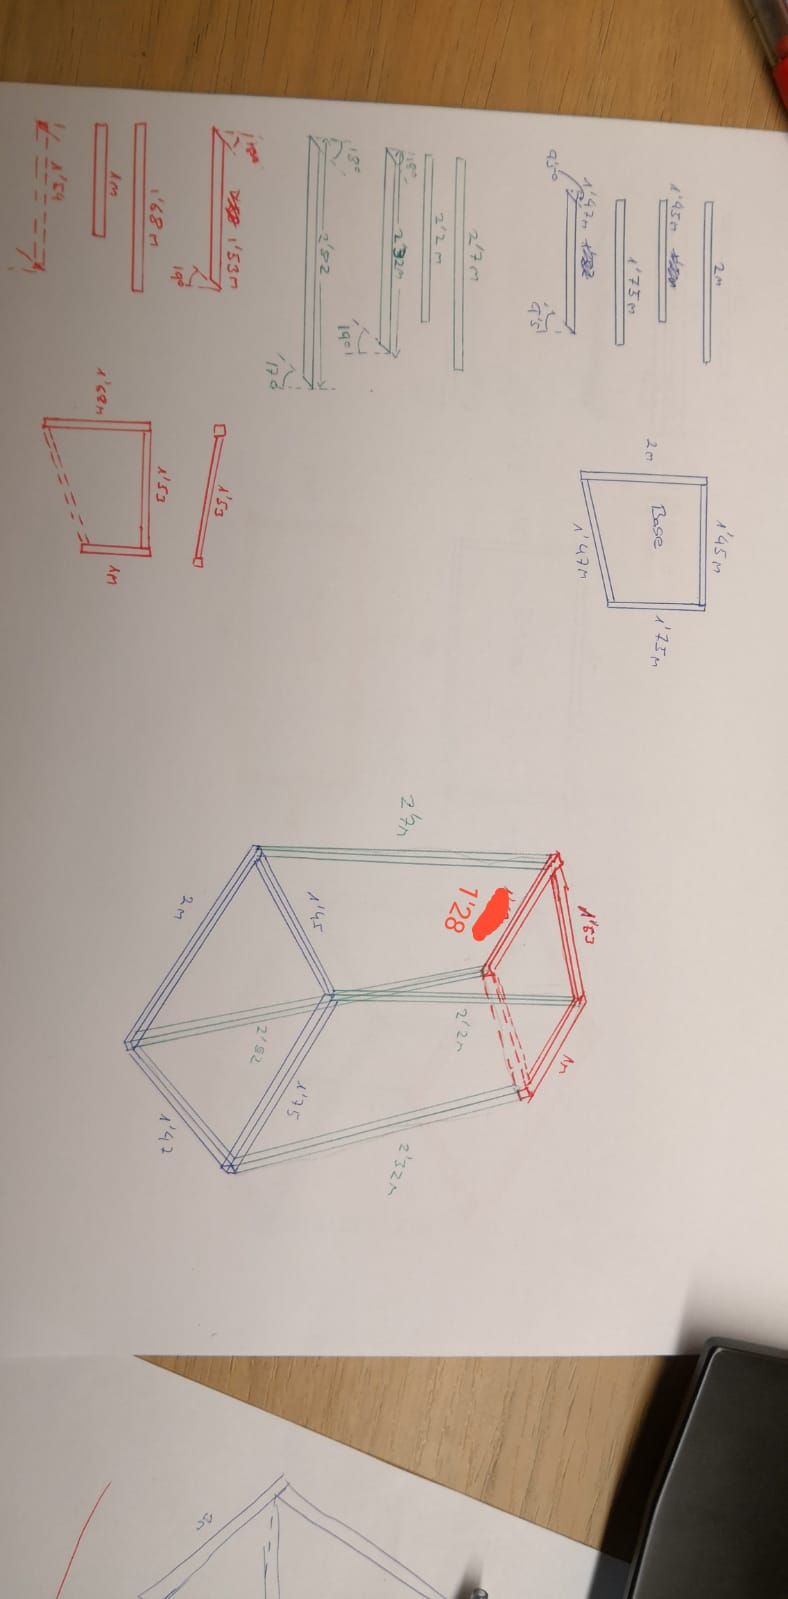 2m
1'45m
1'75m
1'47m
9'5º
9'5
1'45m
2m
Base
1'75m
1'47m
2'7m
2'2m
18º
2'32m
19º
18º
2'82
17º
1'53m
19º
1'68m
1m
1'59
1'53
1'53
1'68m
1m
1'53
1m
1'28
2'2m
2'7m
2'32m
1'45
1'75
2'82
2m
1'47